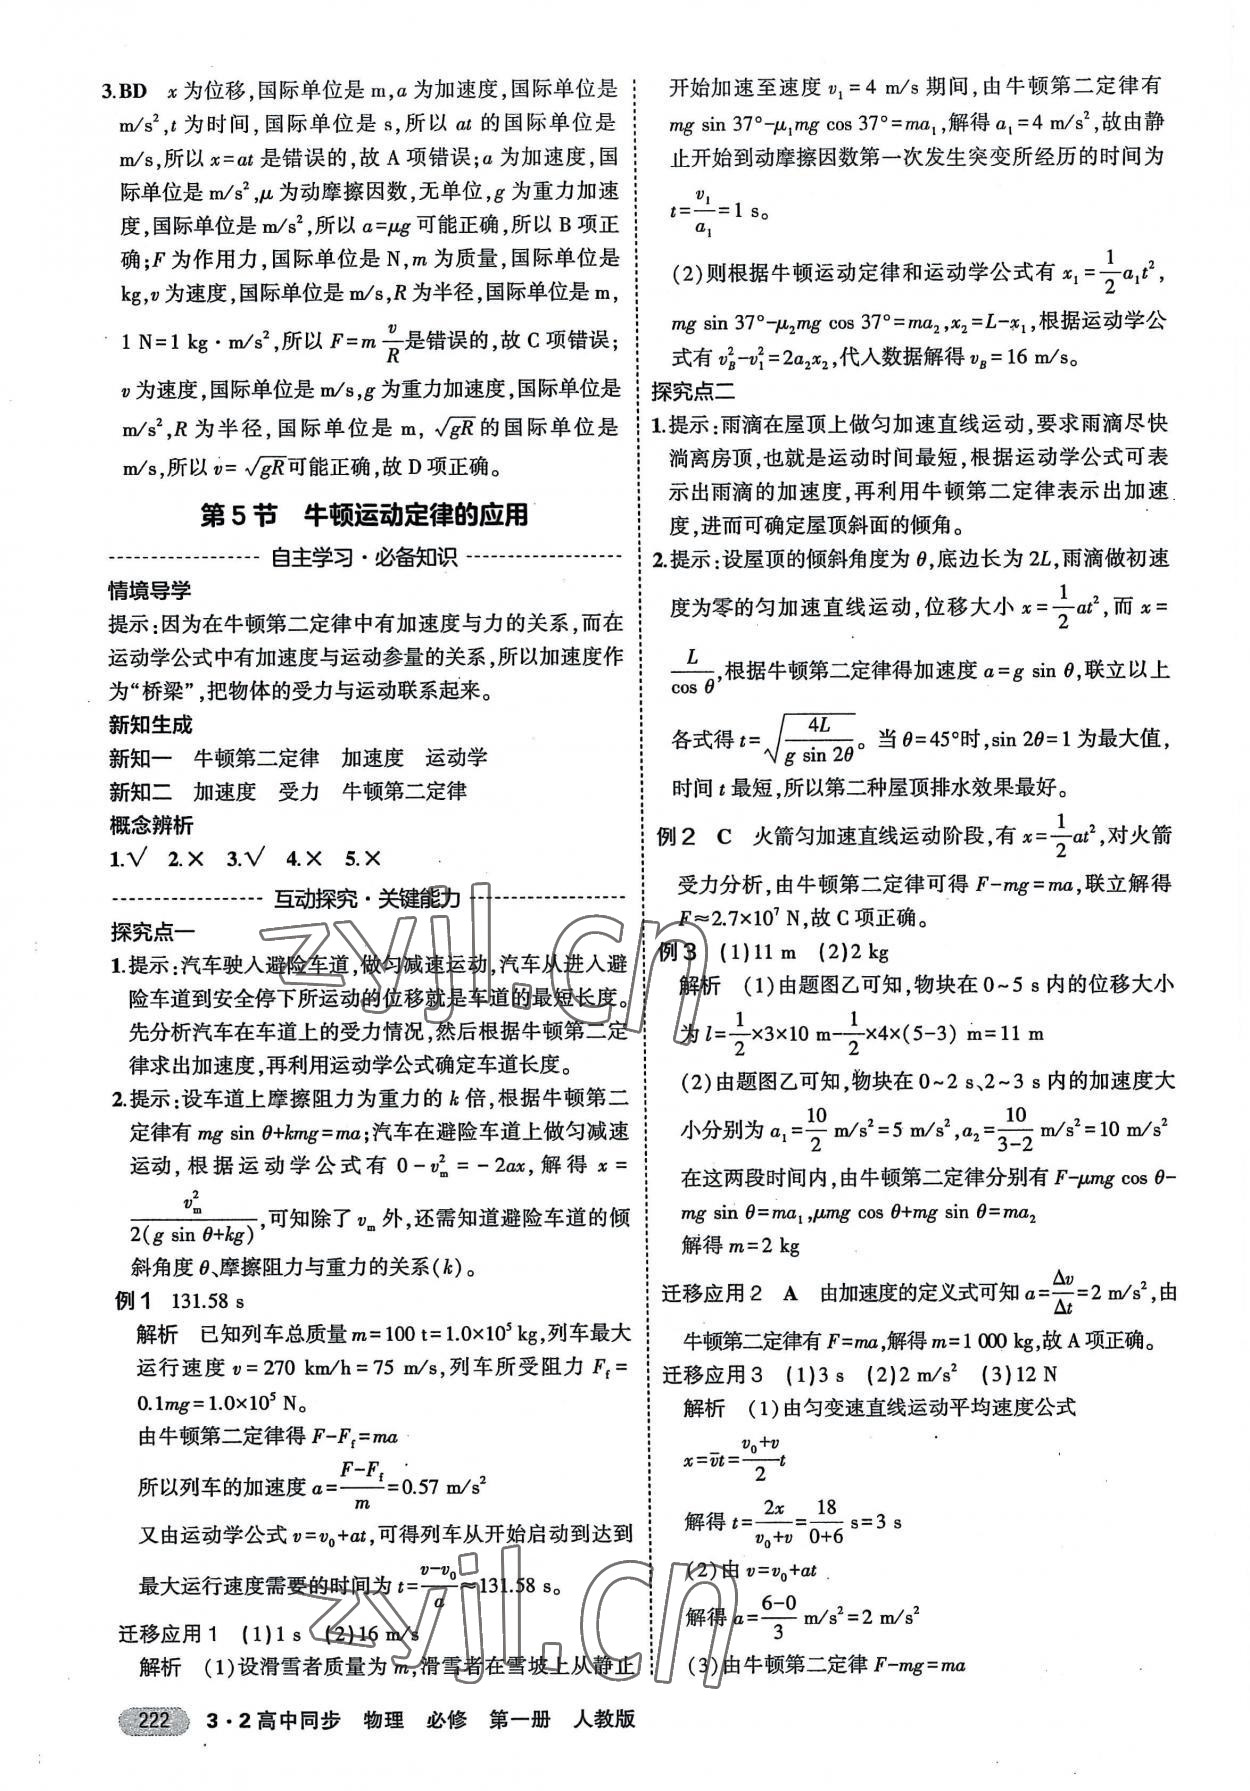 3.BD x 为位移,国际单位是 m,a 为加速度,国际单位是
m/s²,t 为时间,国际单位是 s,所以 at 的国际单位是
m/s,所以 x=at 是错误的,故 A 项错误;a 为加速度,国
际单位是 m/s²,μ 为动摩擦因数,无单位,g 为重力加速
度,国际单位是 m/s²,所以 a=μg 可能正确,所以 B 项正
确;F 为作用力,国际单位是 N,m 为质量,国际单位是
kg,v 为速度,国际单位是 m/s,R 为半径,国际单位是 m,
1 N=1 kg·m/s²,所以 F=m v/R 是错误的,故 C 项错误;
v 为速度,国际单位是 m/s,g 为重力加速度,国际单位是
m/s²,R 为半径,国际单位是 m,√gR 的国际单位是
m/s,所以 v=√gR 可能正确,故 D 项正确。
第 5 节 牛顿运动定律的应用
自主学习·必备知识
情境导学
提示:因为在牛顿第二定律中有加速度与力的关系,而在
运动学公式中有加速度与运动参量的关系,所以加速度作
为“桥梁”,把物体的受力与运动联系起来。
新知生成
新知一 牛顿第二定律 加速度 运动学
新知二 加速度 受力 牛顿第二定律
概念辨析
1.√ 2.× 3.√ 4.× 5.×
互动探究·关键能力
探究点一
1.提示:汽车驶入避险车道,做匀减速运动,汽车从进入避
险车道到安全停下所运动的位移就是车道的最短长度。
先分析汽车在车道上的受力情况,然后根据牛顿第二定
律求出加速度,再利用运动学公式确定车道长度。
2.提示:设车道上摩擦阻力为重力的 k 倍,根据牛顿第二
定律有 mg sin θ+kmg=ma;汽车在避险车道上做匀减速
运动,根据运动学公式有 0-v_m²=-2ax,解得 x=
v_m²/2(g sin θ+kg),可知除了 v_m 外,还需知道避险车道的倾
斜角度 θ、摩擦阻力与重力的关系(k)。
例 1 131.58 s
解析 已知列车总质量 m=100 t=1.0×10⁵ kg,列车最大
运行速度 v=270 km/h=75 m/s,列车所受阻力 F_f=
0.1mg=1.0×10⁵ N。
由牛顿第二定律得 F-F_f=ma
所以列车的加速度 a=(F-F_f)/m=0.57 m/s²
又由运动学公式 v=v₀+at,可得列车从开始启动到达到
最大运行速度需要的时间为 t=(v-v₀)/a≈131.58 s。
迁移应用 1 (1)1 s (2)16 m/s
解析 (1)设滑雪者质量为 m,滑雪者在雪坡上从静止
222 3·2高中同步 物理 必修 第一册 人教版
开始加速至速度 v₁=4 m/s 期间,由牛顿第二定律有
mg sin 37°-μ₁mg cos 37°=ma₁,解得 a₁=4 m/s²,故由静
止开始到动摩擦因数第一次发生突变所经历的时间为
t=v₁/a₁=1 s。
(2)则根据牛顿运动定律和运动学公式有 x₁=1/2 a₁t²,
mg sin 37°-μ₂mg cos 37°=ma₂,x₂=L-x₁,根据运动学公
式有 v_B²-v₁²=2a₂x₂,代入数据解得 v_B=16 m/s。
探究点二
1.提示:雨滴在屋顶上做匀加速直线运动,要求雨滴尽快
淌离房顶,也就是运动时间最短,根据运动学公式可表
示出雨滴的加速度,再利用牛顿第二定律表示出加速
度,进而可确定屋顶斜面的倾角。
2.提示:设屋顶的倾斜角度为 θ,底边长为 2L,雨滴做初速
度为零的匀加速直线运动,位移大小 x=1/2 at²,而 x=
L/cos θ,根据牛顿第二定律得加速度 a=g sin θ,联立以上
各式得 t=√(4L/g sin 2θ)。当 θ=45°时,sin 2θ=1 为最大值,
时间 t 最短,所以第二种屋顶排水效果最好。
例 2 C 火箭匀加速直线运动阶段,有 x=1/2 at²,对火箭
受力分析,由牛顿第二定律可得 F-mg=ma,联立解得
F≈2.7×10⁷ N,故 C 项正确。
例 3 (1)11 m (2)2 kg
解析 (1)由题图乙可知,物块在 0~5 s 内的位移大小
为 l=1/2×3×10 m-1/2×4×(5-3) m=11 m
(2)由题图乙可知,物块在 0~2 s、2~3 s 内的加速度大
小分别为 a₁=10/2 m/s²=5 m/s²,a₂=10/(3-2) m/s²=10 m/s²
在这两段时间内,由牛顿第二定律分别有 F-μmg cos θ-
mg sin θ=ma₁,μmg cos θ+mg sin θ=ma₂
解得 m=2 kg
迁移应用 2 A 由加速度的定义式可知 a=Δv/Δt=2 m/s²,由
牛顿第二定律有 F=ma,解得 m=1 000 kg,故 A 项正确。
迁移应用 3 (1)3 s (2)2 m/s² (3)12 N
解析 (1)由匀变速直线运动平均速度公式
x=v̄t=(v₀+v)/2 t
解得 t=2x/(v₀+v)=18/(0+6) s=3 s
(2)由 v=v₀+at
解得 a=(6-0)/3 m/s²=2 m/s²
(3)由牛顿第二定律 F-mg=ma
zyjl.cn
zyjl.cn